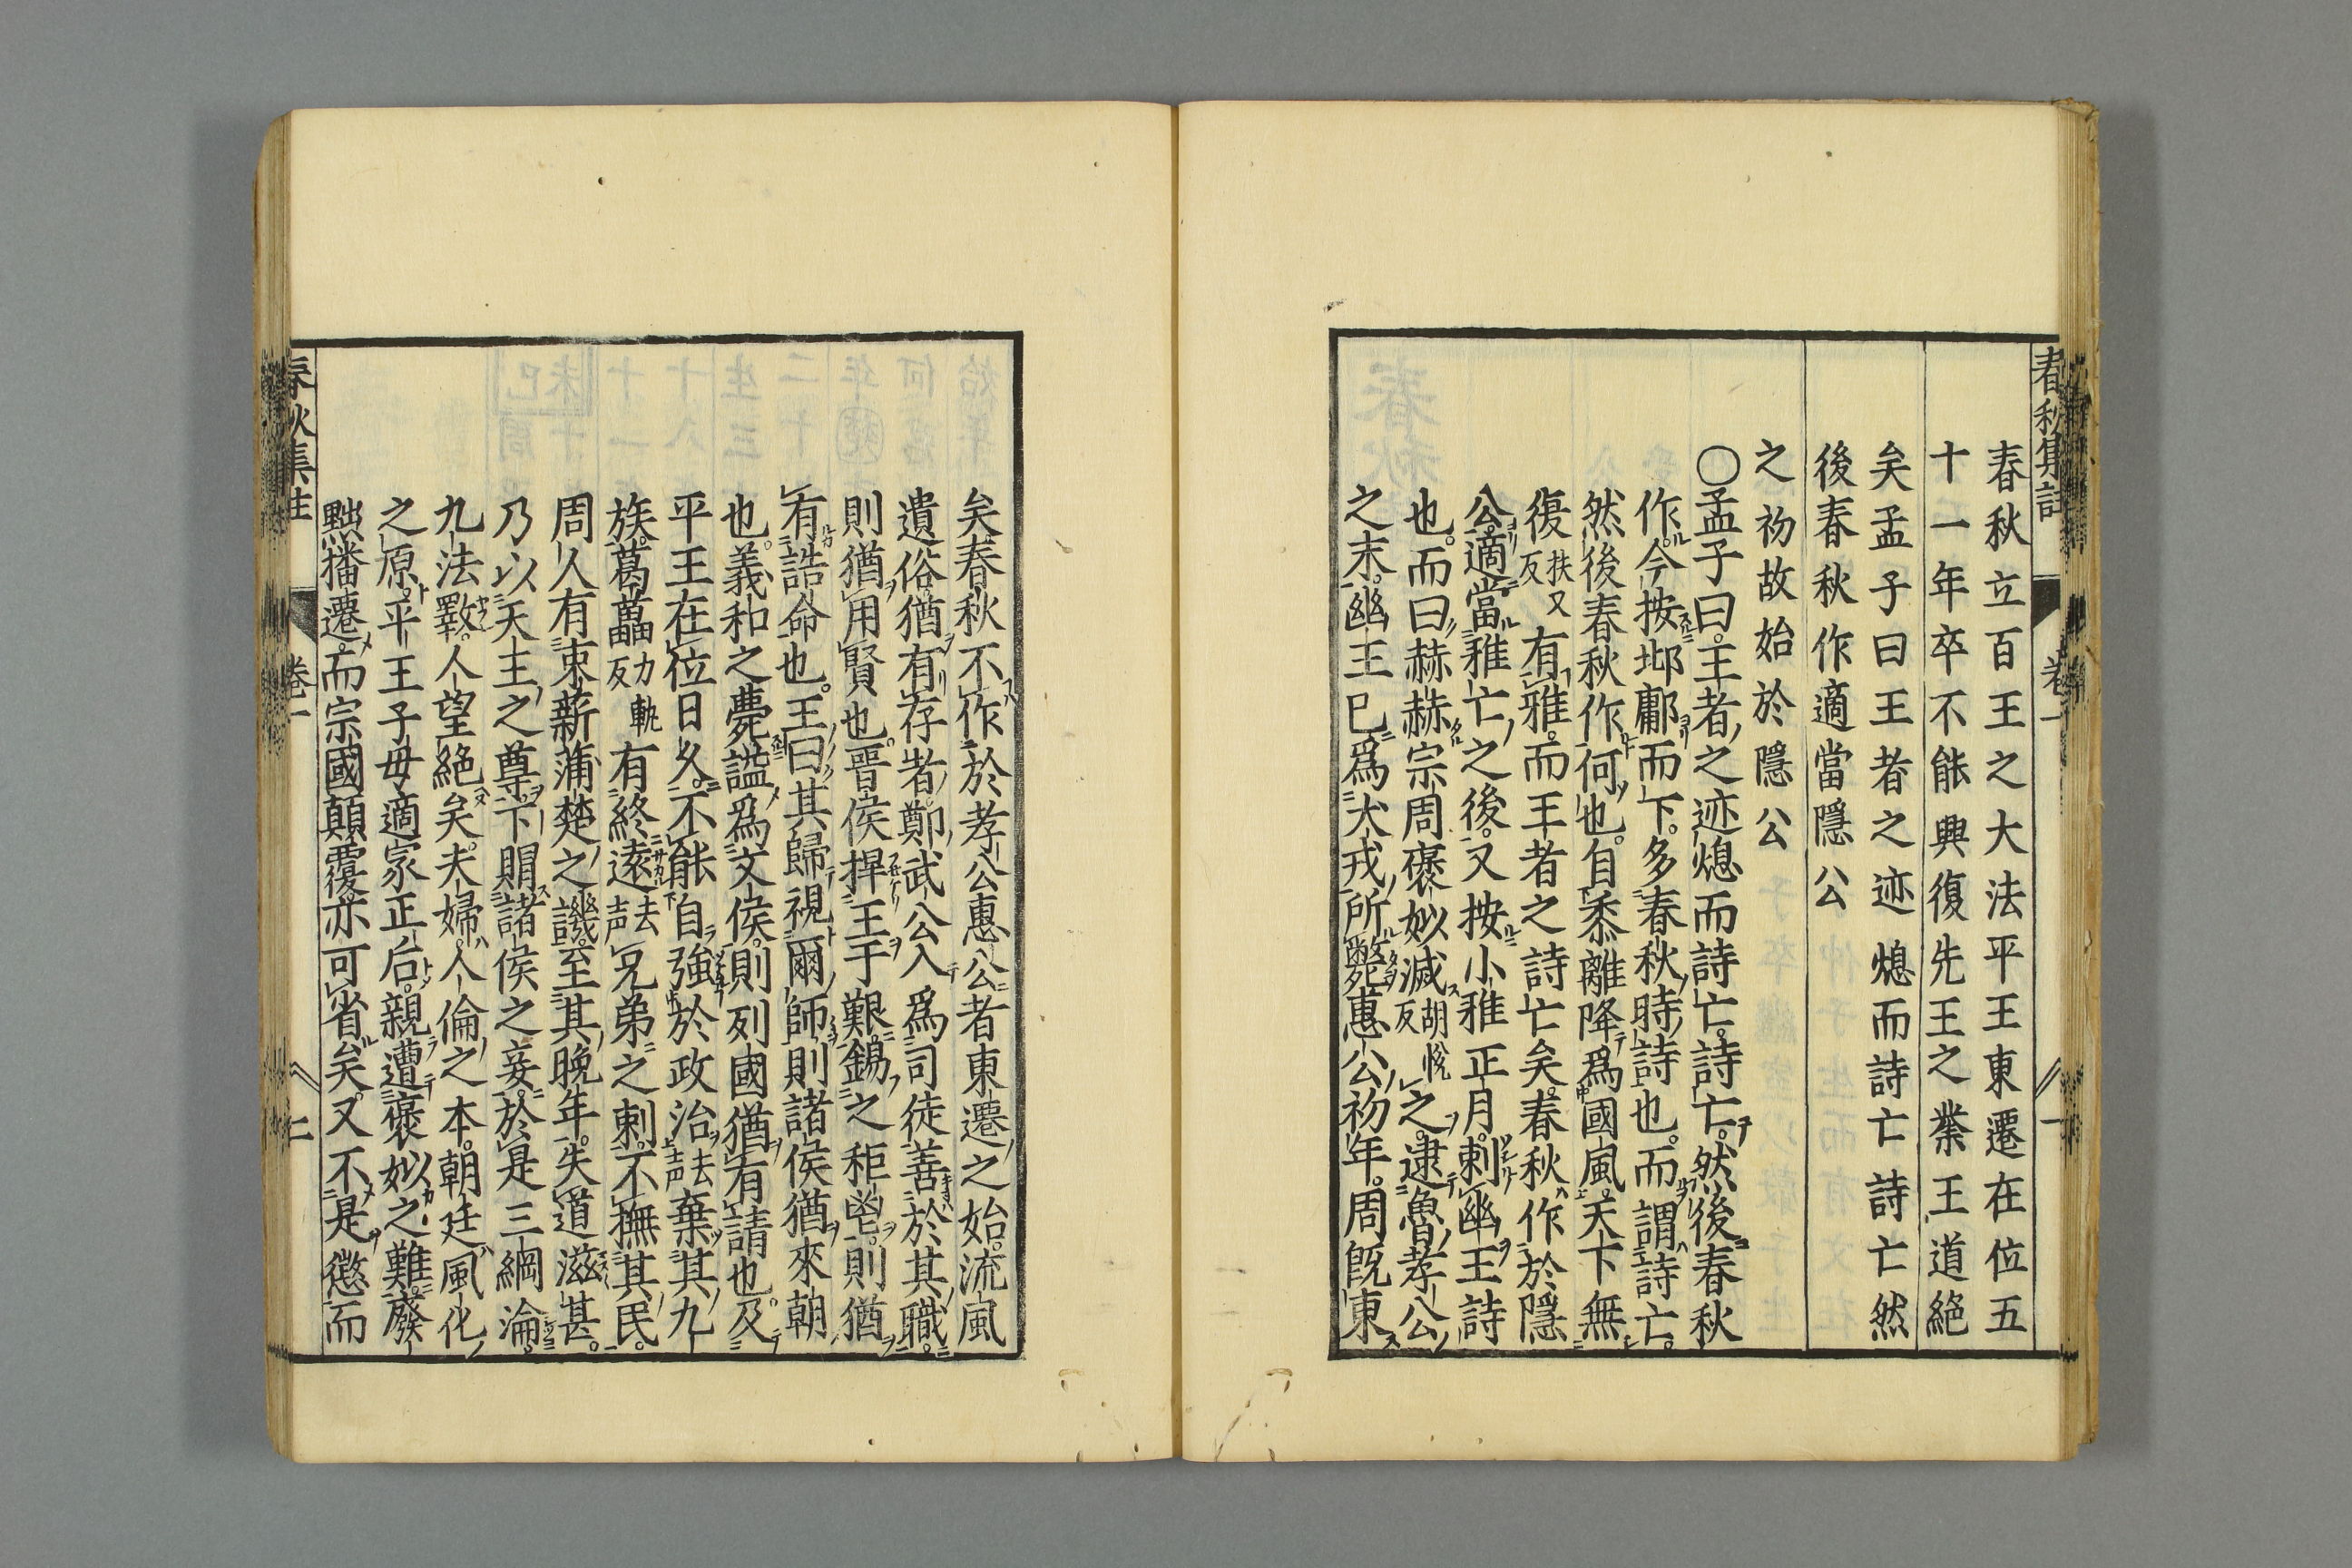 春秋集註 卷一 一
春秋立百王之大法平王東遷在位五
十一年卒不能興復先王之業王道絕
矣孟子曰王者之迹熄而詩亡詩亡然
後春秋作適當隱公
之初故始於隱公
○孟子曰。王者之迹熄而詩亡。詩亡。然後春秋
作。今按邶鄘而下。多春秋時詩也。而謂詩亡。
然後春秋作。何也。自黍離降爲國風。天下無
復扶又反有雅。而王者之詩亡矣。春秋作於隱
公。適當雅亡之後。又按小雅正月。刺幽王詩
也。而曰赫赫宗周褒姒滅胡悅反之。逮魯孝公
之末。幽王已爲犬戎所斃。惠公初年。周旣東
矣。春秋不作於孝公惠公者東遷之始。流風
遺俗。猶有存者。鄭武公入爲司徒善於其職。
則猶用賢也。晉侯捍王于艱。錫之秬鬯。則猶
有誥命也。王曰其歸視爾師。則諸侯猶來朝
也。義和之薨謚爲文侯。則列國猶有請也。及
平王在位日久。不能自強於政治去声棄其九
族。葛藟力軌反有終遠去声兄弟之刺。不撫其民。
周人有束薪蒲楚之譏。至其晚年。失道滋甚。
乃以天王之尊。下賵諸侯之妾。於是三綱淪。
九法斁。人望絕矣。夫婦。人倫之本。朝廷風化
之原。平王子母適冢正后。親遭褒姒之難。廢
黜播遷。而宗國顛覆。亦可省矣。又不是懲而
春秋集註 卷一 二